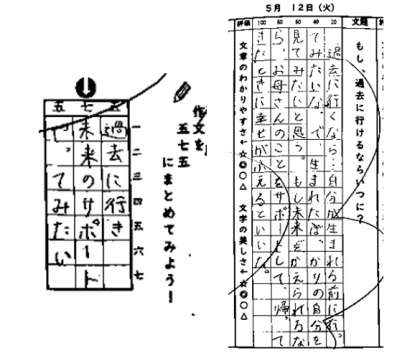 5月 12日(火)
文題
もし、過去に行けるならいつに？
評価 100 80 60 40 20
過去に行くなら…自分が生まれる前に行っ
てみたいな。で、生まれたばかりの自分を
見てみたいと思う。もし未来がかえられるな
ら、お母さんのことサポートして、帰って
きたとき幸せがふえるといいな。
文章のわかりやすさ←☆◎○△ 文字の美しさ←☆◎○△
作文を
五七五
にまとめてみよう！
五 七 五
一 二 三 四 五 六 七
過去に行き
未来のサポート
てみたい